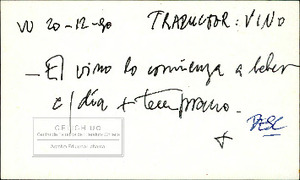 W 20-12-90 TRADUCTOR: VINO
— El vino lo comienza a beber
el día + temprano.
+
DESC
CEDOCH UC